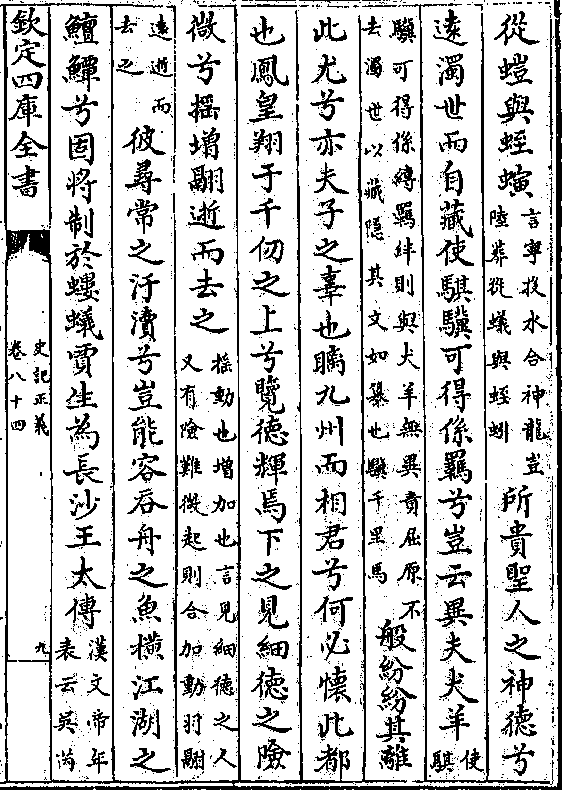 從螘與蛭螾言寧投水合神龍豈陸葬從蟻與蛭蚓所貴聖人之神德兮
遠濁世而自藏使騏驥可得係羈兮豈云異夫犬羊使騏
驥可得係縛羈絆則與犬羊無異責屈原不去濁世以藏隱其文如纂也驥千里馬般紛紛其離
此尤兮亦夫子之辜也瞝九州而相君兮何必懷此都
也鳳皇翔于千仞之上兮覽德輝焉下之見細德之險
微兮搖增翮逝而去之搖動也增加也言見細德之人又有險難微起則合加動羽翮
遠逝而去之彼尋常之汙瀆兮豈能容吞舟之魚橫江湖之
鱣鱏兮固將制於螻蟻賈生為長沙王太傅漢文帝年表云吳芮
欽定四庫全書
史記正義
卷八十四
九